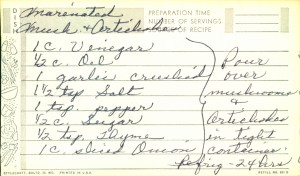 Marinated
Mush. & Artichokes
DISH
PREPARATION TIME
NUMBER OF SERVINGS
OF RECIPE
1 c. Vinegar
1/2 c. Oil
1 garlic crushed
1 1/2 tsp Salt
1 tsp. pepper
1/2 c. Sugar
1/2 tsp. Thyme
1 c. sliced Onion
Pour
over
mushrooms
&
Artichokes
in tight
container.
Refrig - 24 hrs
PRINTED IN U.S.A.